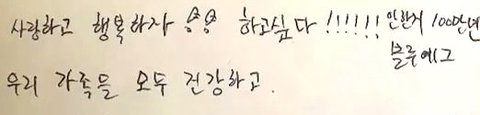 사랑하고 행복하자 하고싶다!!!!!! 안한지 100만년
블루예그
우리 가족들 모두 건강하고.